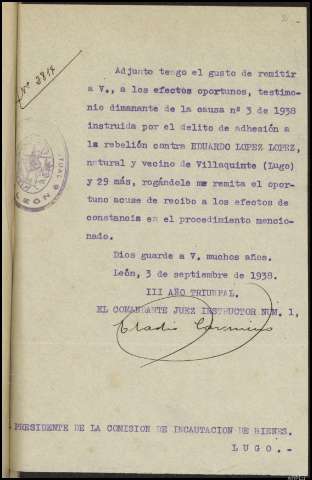 Nº 2814
Adjunto tengo el gusto de remitir
a V., a los efectos oportunos, testimo-
nio dimanante de la causa nº 3 de 1938
instruida por el delito de adhesión a
la rebelión contra EDUARDO LOPEZ LOPEZ,
natural y vecino de Villaquinte (Lugo)
y 29 más, rogándole me remita el opor-
tuno acuse de recibo a los efectos de
constancia en el procedimiento mencio-
nado.
Dios guarde a V. muchos años.
León, 3 de septiembre de 1938.
III AÑO TRIUNFAL.
EL COMANDANTE JUEZ INSTRUCTOR NUM. 1,
Eladio
LEON
PRESIDENTE DE LA COMISION DE INCAUTACION DE BIENES.
LUGO.-